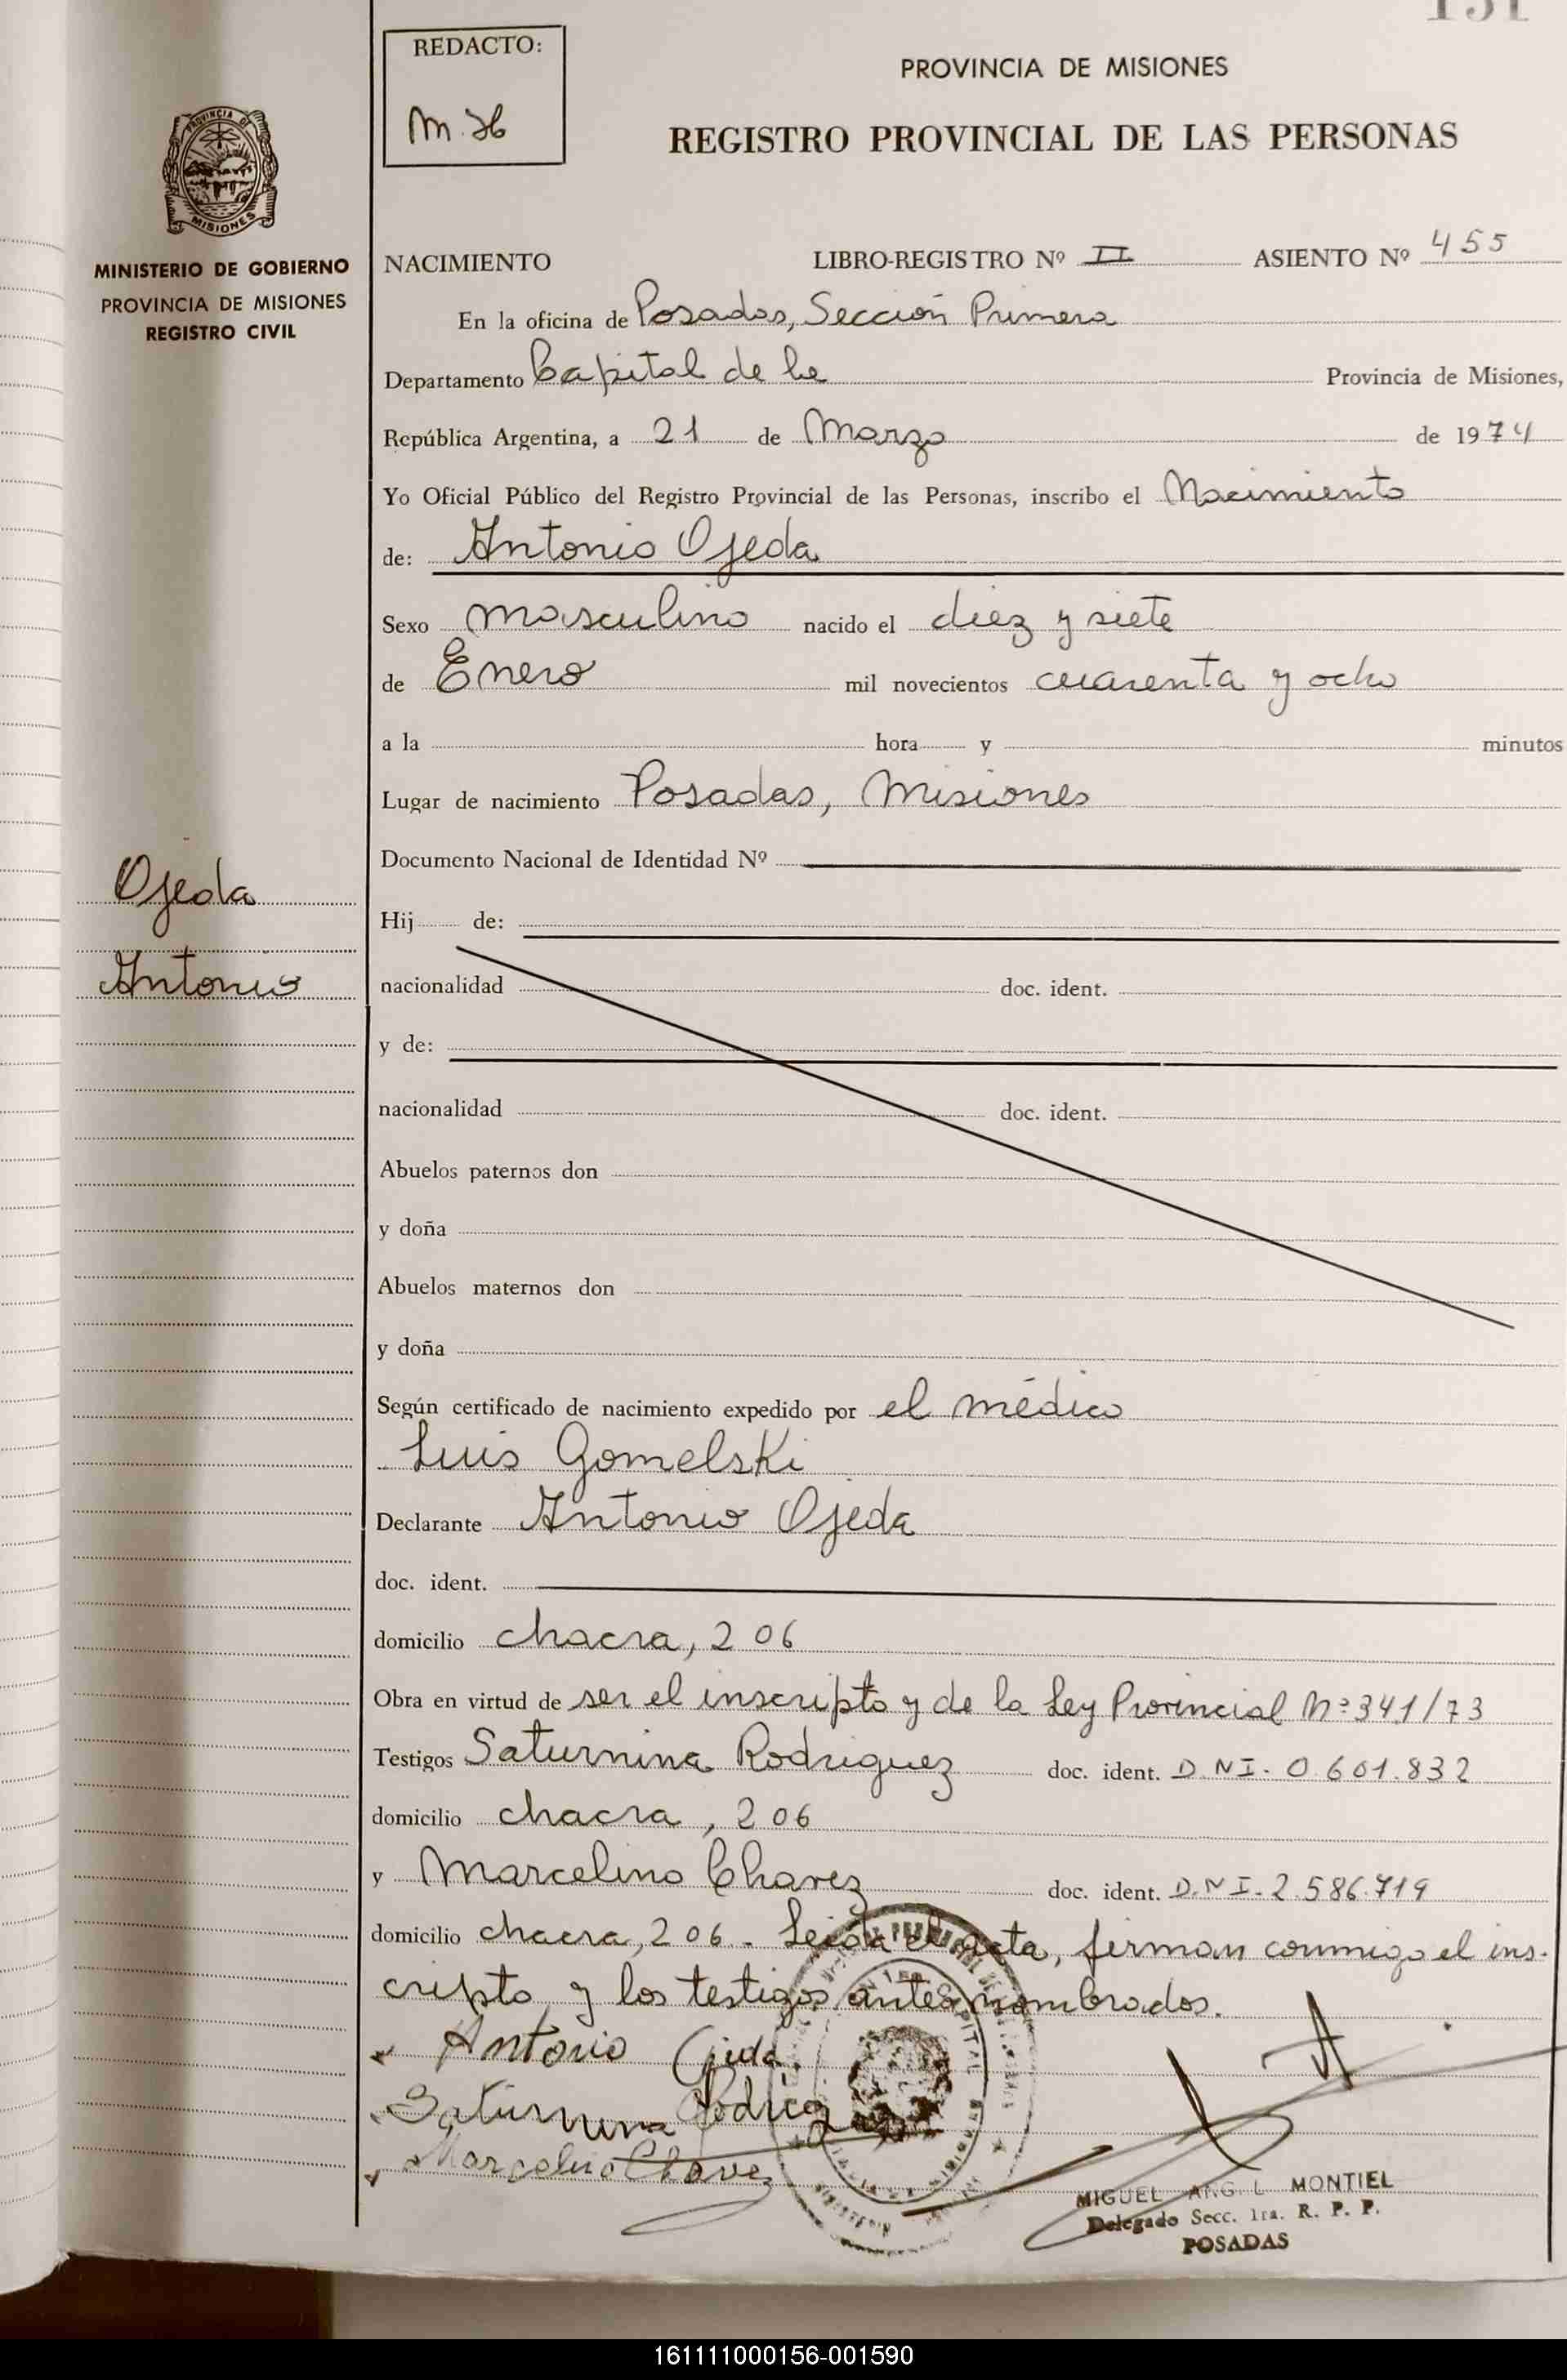 REDACTO:
PROVINCIA DE MISIONES
REGISTRO PROVINCIAL DE LAS PERSONAS
PROVINCIA DE
MISIONES
MINISTERIO DE GOBIERNO
PROVINCIA DE MISIONES
REGISTRO CIVIL
NACIMIENTO LIBRO-REGISTRO Nº II ASIENTO Nº 455
En la oficina de Posadas, Sección Primera
Departamento Capital de la Provincia de Misiones,
República Argentina, a 21 de Marzo de 1974
Yo Oficial Público del Registro Provincial de las Personas, inscribo el Nacimiento
de: Antonio Ojeda
Sexo masculino nacido el diez y siete
de Enero mil novecientos cuarenta y ocho
a la hora y minutos
Lugar de nacimiento Posadas, Misiones
Documento Nacional de Identidad Nº
Ojeda
Antonio
Hij de:
nacionalidad doc. ident.
y de:
nacionalidad doc. ident.
Abuelos paternos don
y doña
Abuelos maternos don
y doña
Según certificado de nacimiento expedido por el médico
Luis Gomelski
Declarante Antonio Ojeda
doc. ident.
domicilio chacra, 206
Obra en virtud de ser el inscripto y de la Ley Provincial Nº 341/73
Testigos Saturnina Rodriguez doc. ident. D.NI. 0.601.832
domicilio chacra, 206
y Marcelino Chavez doc. ident. D.NI. 2.586.719
domicilio chacra, 206. Leida el acta, firman conmigo el ins-
cripto y los testigos antes nombrados.
Antonio Ojeda
Saturnina Rodriguez
Marcelino Chavez
MIGUEL ANG. L. MONTIEL
Delegado Secc. 1ra. R. P. P.
POSADAS
161111000156-001590